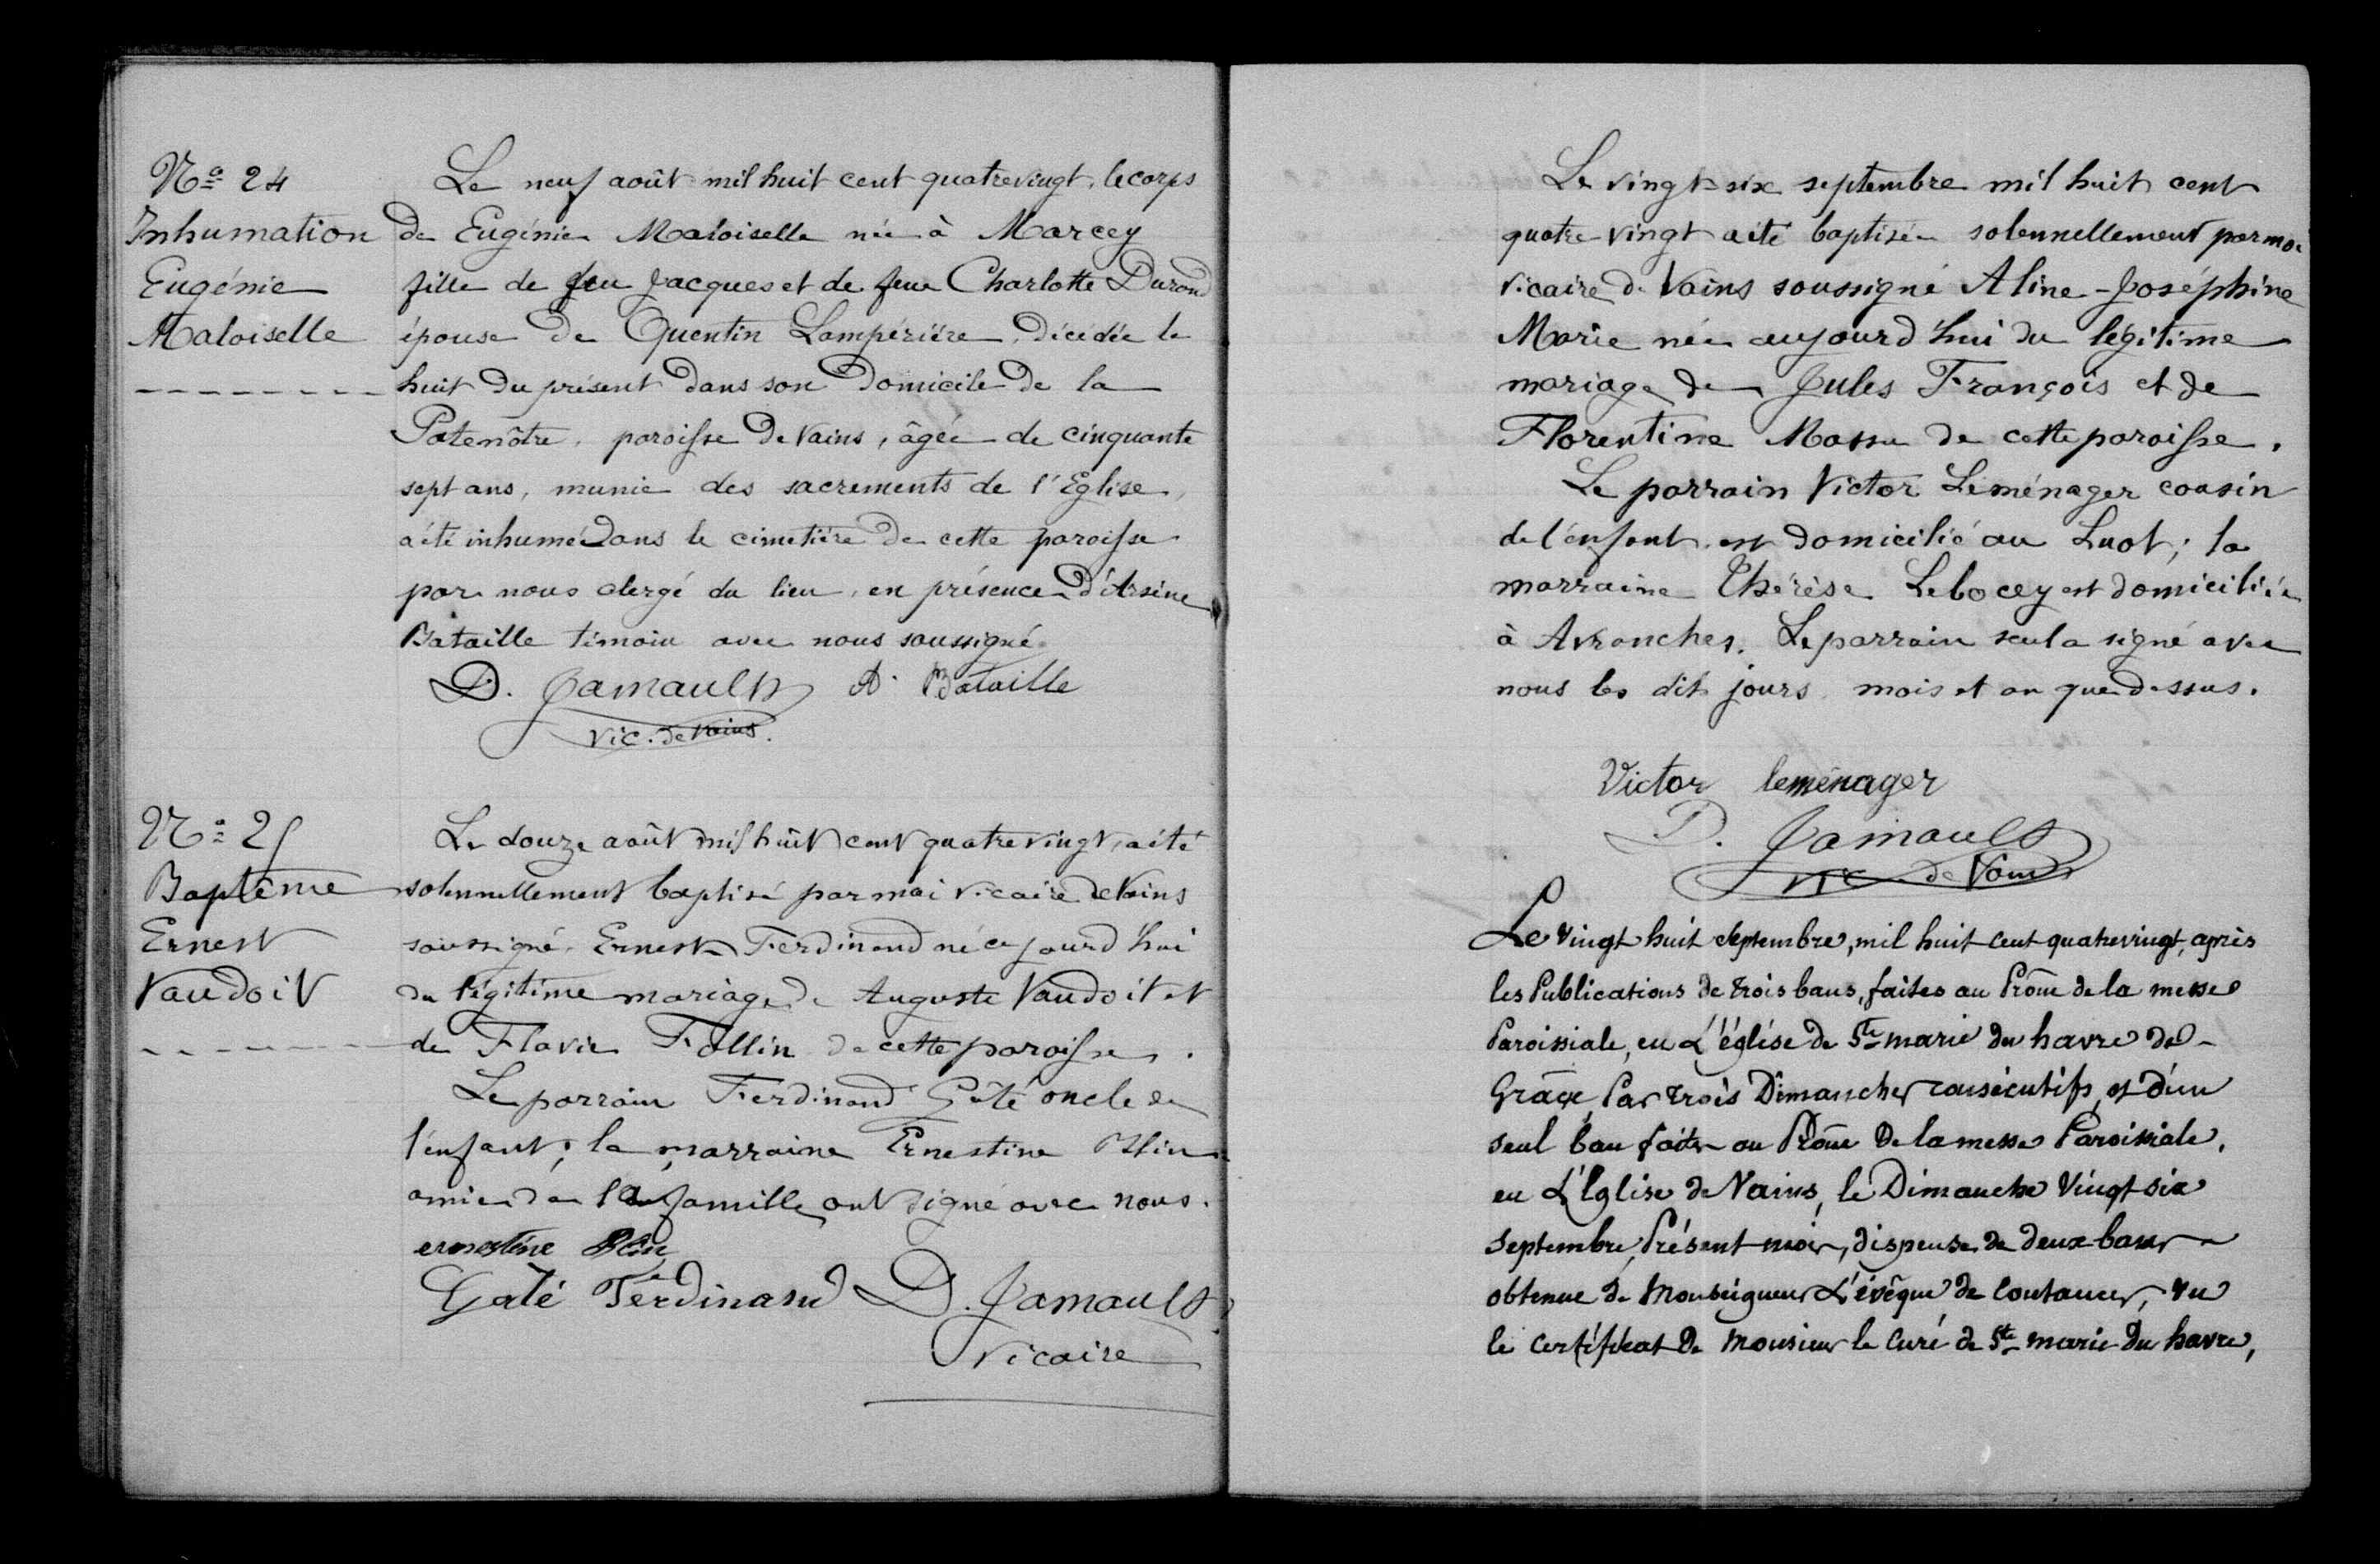 Nº 24
Inhumation
Eugénie
Maloiselle
Le neuf août mil huit cent quatrevingt, le corps
de Eugénie Maloiselle née à Marcey
fille de feu Jacques et de feue Charlotte Durand
épouse de Quentin Lampérière, décédée le
huit du présent dans son domicile de la
Patenôtre, paroisse de Vains, âgée de cinquante
sept ans, munie des sacrements de l'Eglise,
a été inhumé dans le cimetière de cette paroisse
par nous clergé du lieu, en présence d'Arsène
Bataille témoin avec nous soussigné.
D. Jamault A. Bataille
vic. de Vains.
Nº 25
Baptême
Ernest
Vaudoit
Le douze août mil huit cent quatrevingt, a été
solennellement baptisé par moi vicaire de Vains
soussigné, Ernest Ferdinand né ce jourd'hui
du légitime mariage de Auguste Vaudoit et
de Flavie Follin de cette paroisse.
Le parrain Ferdinand Gâté oncle de
l'enfant; la marraine Ernestine Blin
amie de la famille ont signé avec nous.
ernestine Blin
Gaté Ferdinand D. Jamault
Vicaire
Le vingt six septembre mil huit cent
quatre vingt a été baptisée solennellement par moi
vicaire de Vains soussigné Aline-Joséphine
Marie née aujourd'hui du légitime
mariage de Jules François et de
Florentine Massu de cette paroisse.
Le parrain Victor Leménager cousin
de l'enfant, est domicilié au Luot; la
marraine Thérèse Lebocey est domiciliée
à Avranches. Le parrain seul a signé avec
nous les dits jours, mois et an que dessus.
Victor leménager
D. Jamault
vic de Vains
Le vingt huit septembre, mil huit cent quatrevingt, après
les Publications de trois bans, faites au Prône de la messe
Paroissiale, en L'église de Ste marie du havre de
Grâce, Par trois Dimanches consécutifs, et d'un
seul ban fait au Prône De la messe Paroissiale,
en L'Eglise de Vains, le Dimanche Vingt six
septembre, Présent mois, dispense de deux bans
obtenue de Monseigneur L'évêque de Coutances, vu
le certificat De Monsieur le Curé de Ste marie du havre,